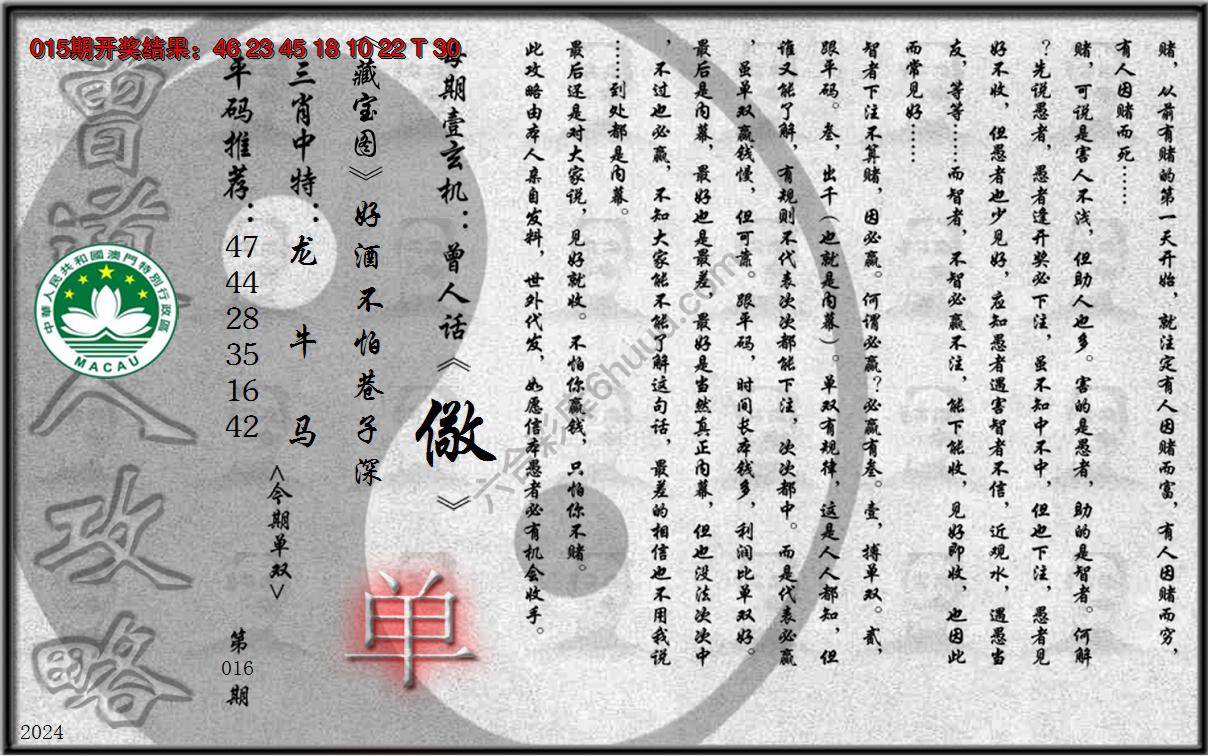 015期开奖结果：46 23 45 18 10 22 T 30
赌，从前有赌的第一天开始，就注定有人因赌而富，有人因赌而穷，
有人因赌而死……
赌，可说是害人不浅，但助人也多。害的是愚者，助的是智者。何解
？先说愚者，愚者逢开奖必下注，虽不知中不中，但也下注，愚者见
好不收，但愚者也少见好，应知愚者遇害智者不信，近观水，遇愚当
友，等等……而智者，不智必赢不注，能下能收，见好即收，也因此
而常见好……
智者下注不算赌，因必赢。何谓必赢？必赢有叁。壹，搏单双。贰，
跟平码。叁，出千（也就是内幕）。单双有规律，这是人人都知，但
谁又能了解，有规则不代表次次都能下注，次次都中。而是代表必赢
，虽单双赢钱慢，但可靠。跟平码，时间长本钱多，利润比单双好。
最后是内幕，最好也是最差，最好是当然真正内幕，但也没法次次中
，不过也必赢，不知大家能不能了解这句话，最差的相信也不用我说
……到处都是内幕。
最后还是对大家说，见好就收。不怕你赢钱，只怕你不赌。
此攻略由本人亲自发料，世外代发，如愿信本愚者必有机会收手。
每期壹玄机：曾人话《儆》
《藏宝图》好酒不怕巷子深
三肖中特：龙 牛 马
平码推荐：47 44 28 35 16 42
<今期单双>
单
第016期
曾道人攻略
中華人民共和國澳門特別行政區
MACAU
2024